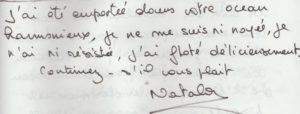 J'ai été emportée dans votre ocean
harmonieux, je ne me suis ni noyée, je
n'ai ni résisté, j'ai floté délicieusement,
Continuez - s'il vous plait